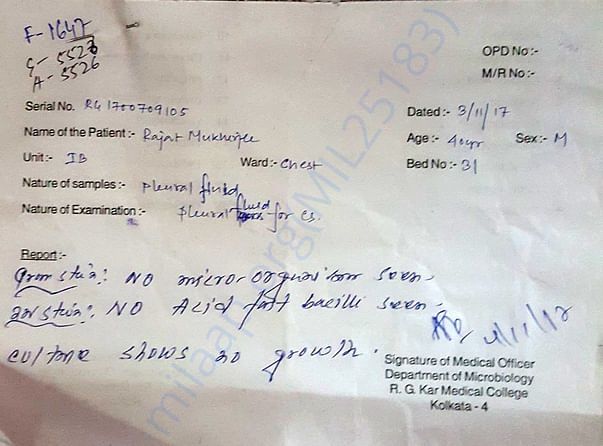 F-1647
G-5523
A-5526
OPD No :-
M/R No :-
Serial No. RG 1700709105
Dated :- 3/11/17
Name of the Patient :- Rajat Mukherjee
Age :- 40yr Sex :- M
Unit :- IB Ward :- Chest Bed No :- 31
Nature of samples :- pleural fluid
Nature of Examination :- pleural fluid for cs.
Report :-
Gram stain: NO micro-organism seen.
ZN stain: NO Acid fast bacilli seen.
culture shows no growth.
Signature of Medical Officer
Department of Microbiology
R. G. Kar Medical College
Kolkata - 4
milaap.org(MIL25183)